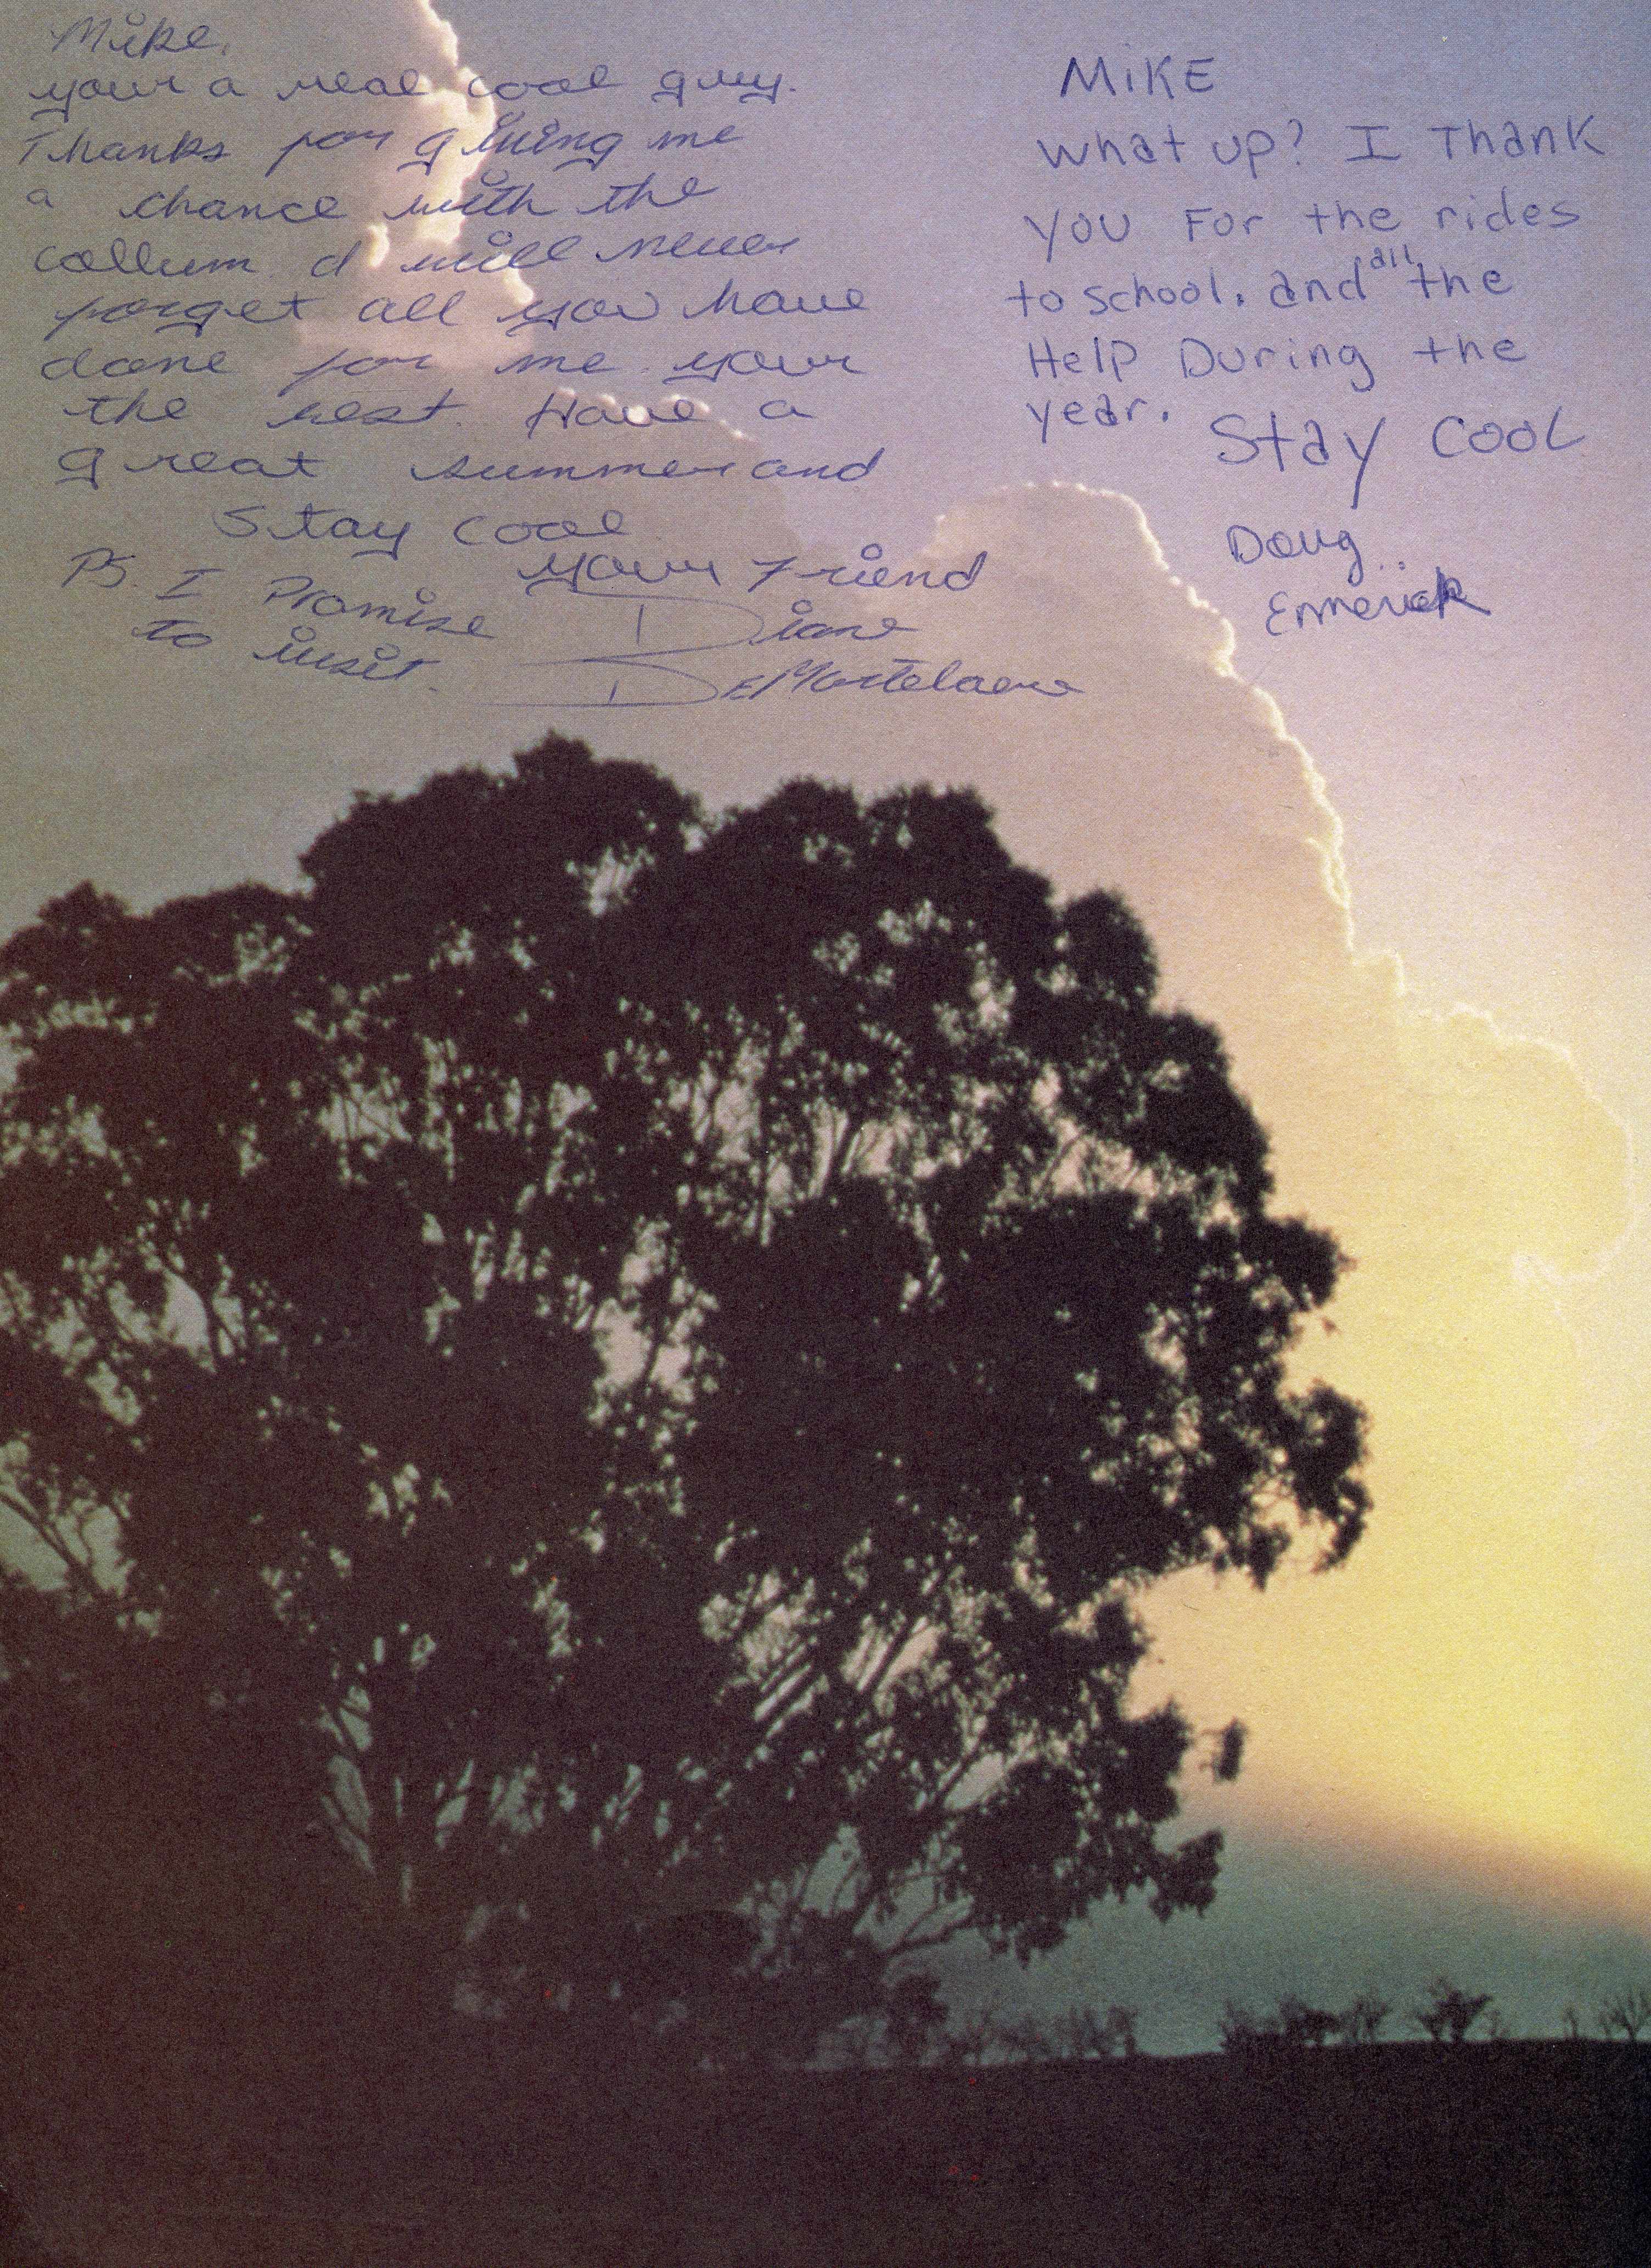 Mike,
your a real cool guy.
Thanks for giving me
a chance with the
collum. I will never
forget all you have
done for me. your
the best. Have a
great summer and
Stay cool
your Friend
Diane
DeMartelaere
PS. I Promise
to visit.
MiKE
what up? I Thank
you For the rides
to school. and all the
Help During the
year.
Stay Cool
Doug
Emerick